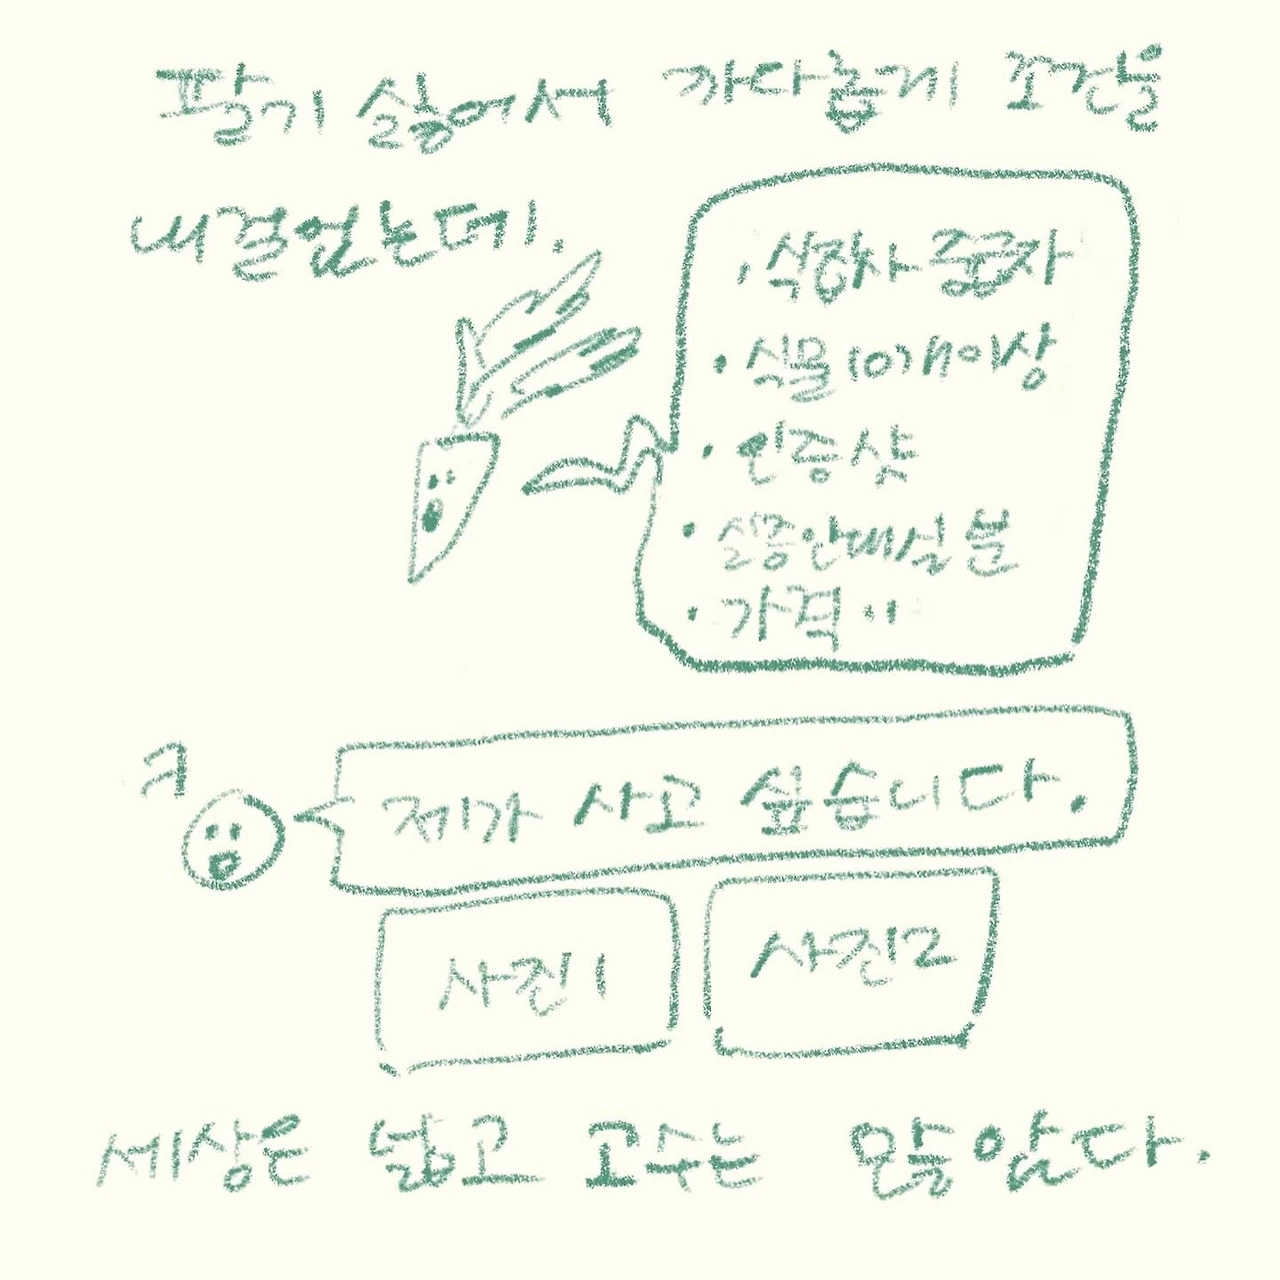 팔기 싫어서 까다롭게 조건을
내걸었는데.
· 식집사 종자
· 식물 10개 이상
· 인증샷
· 실증안내실 분
· 가격 ..
구
제가 사고 싶습니다.
사진1
사진2
세상은 넓고 고수는 많았다.